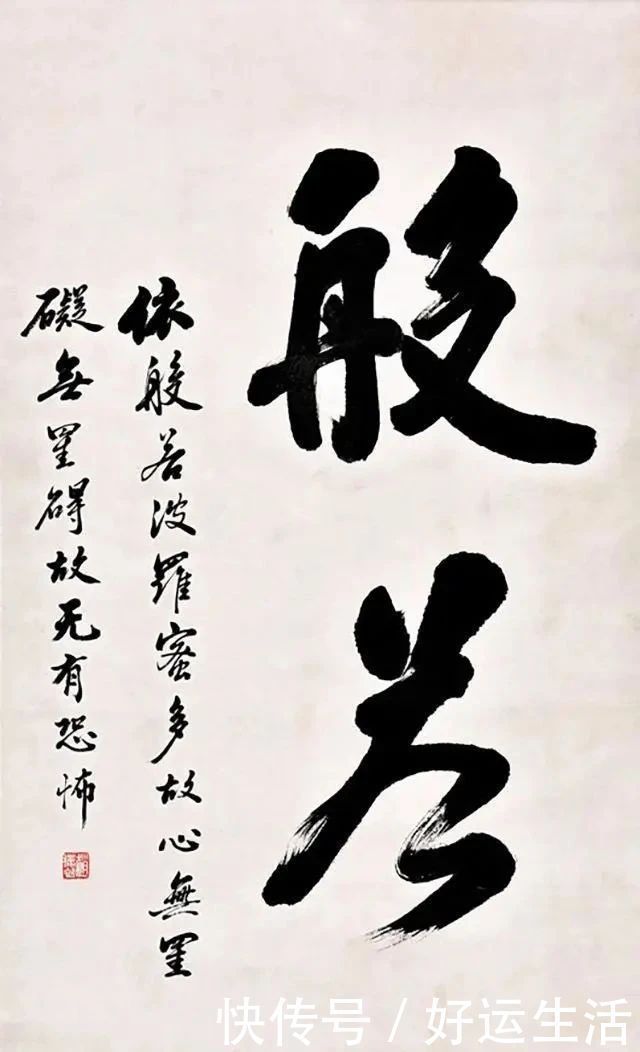 般若
依般若波羅蜜多故心無罣
礙無罣碍故无有恐怖
快传号 / 好运生活